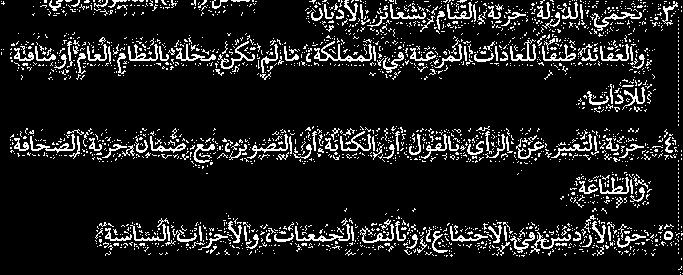 ٣. تحمي الدولة حرية القيام بشعائر الأديان
والعقائد طبقًا للعادات المرعية في المملكة، ما لم تكن مخلة بالنظام العام أو منافية
للآداب.
٤. حرية التعبير عن الرأي بالقول أو الكتابة أو التصوير، مع ضمان حرية الصحافة
والطباعة.
٥. حق الأردنيين في الاجتماع، وتأليف الجمعيات، والأحزاب السياسية